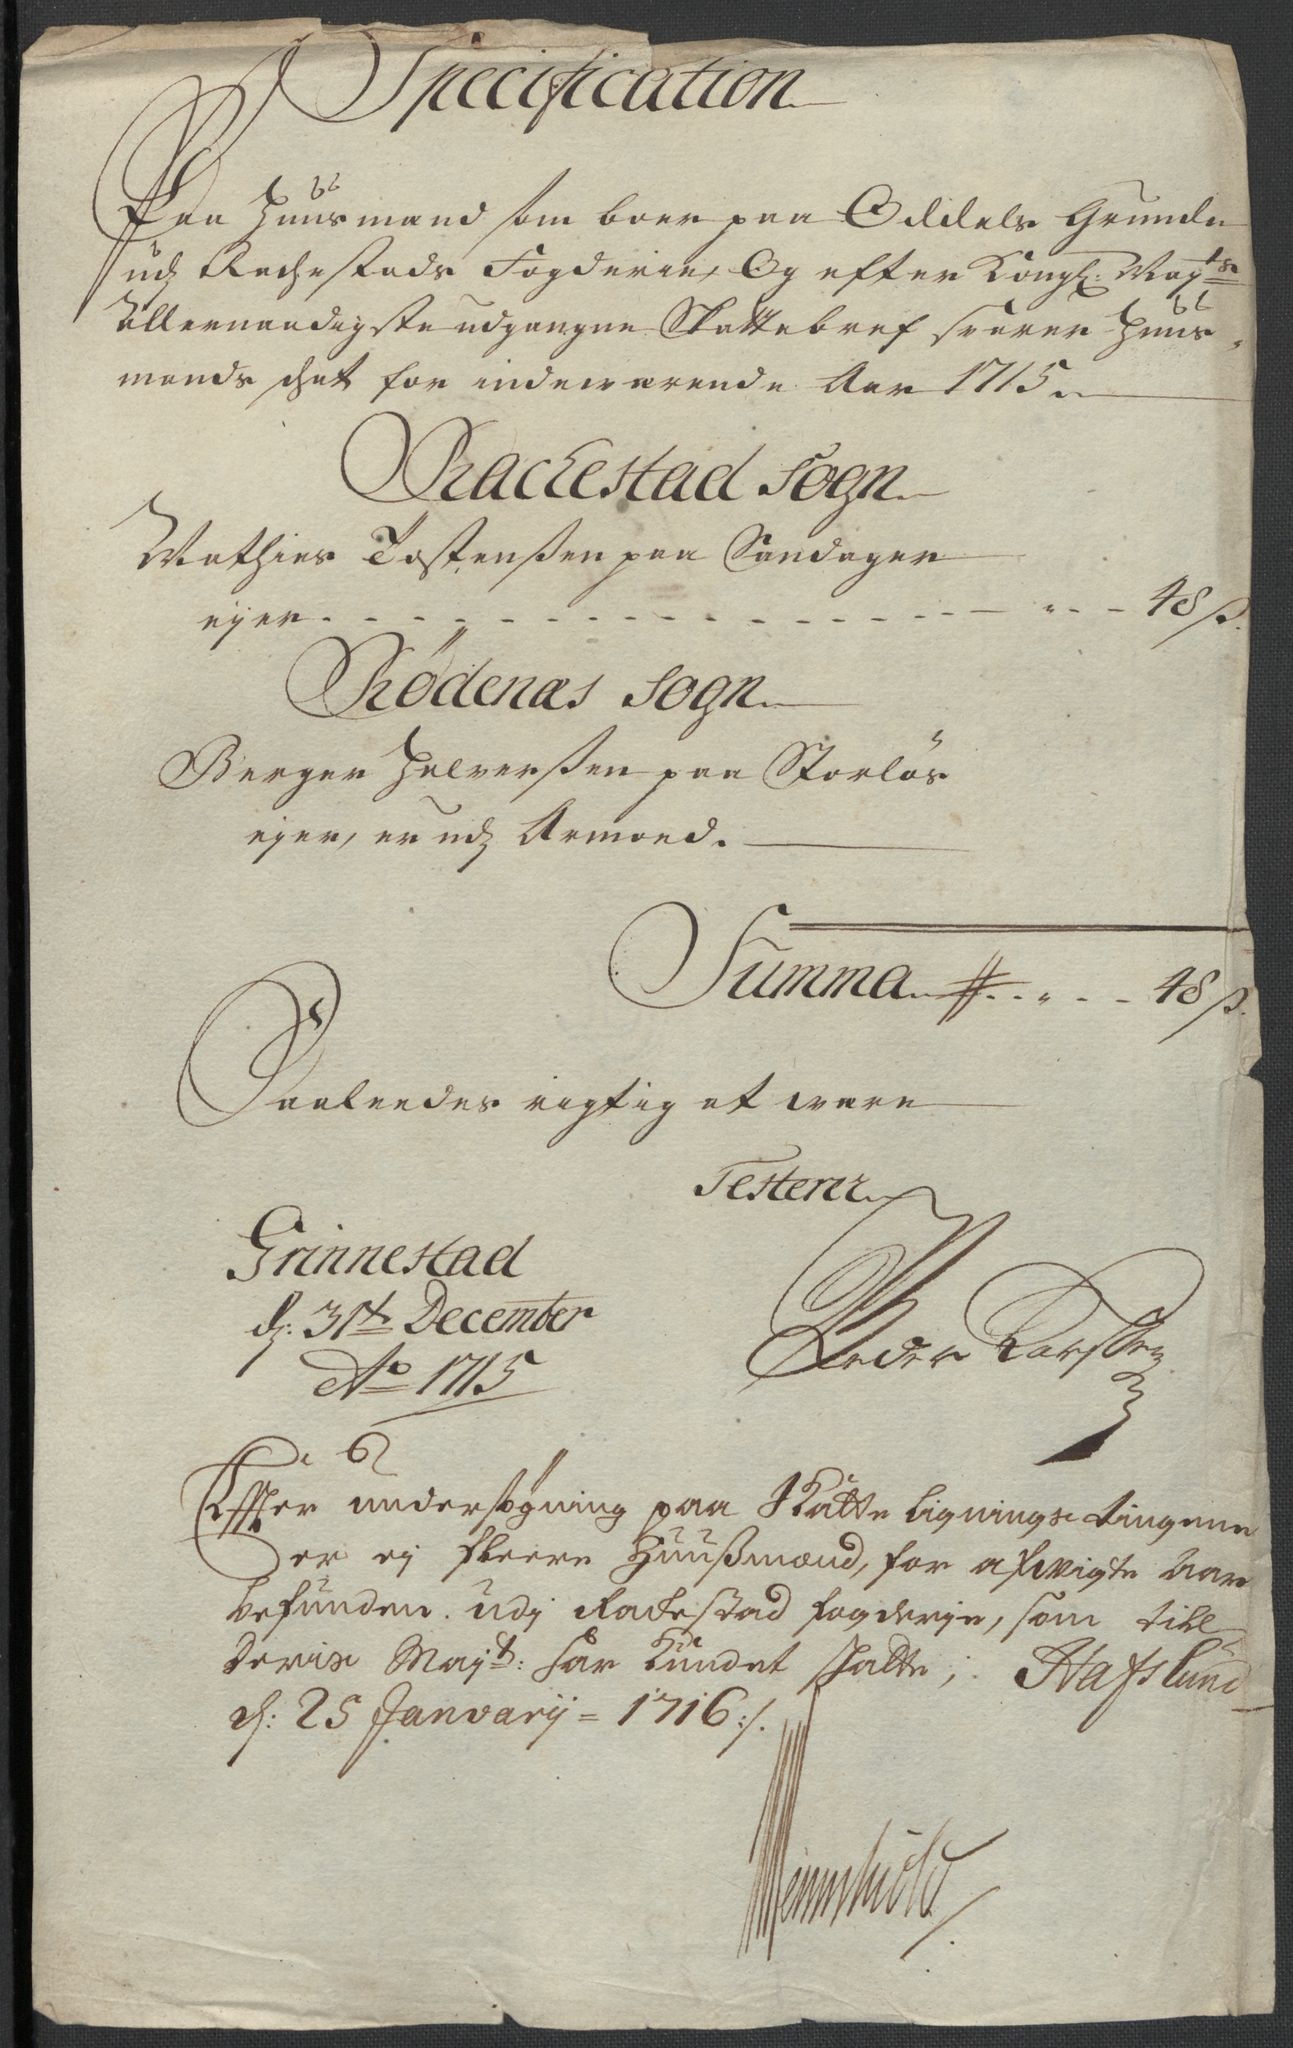 Specification
Paa Huusmænd som boer paa Oddels Grunde
udj Rachestads Fogderie, Og efter Kongl: Mayts
Allernaadigste udgangne Skattebref svarer Huus,
mands skat for indeværende Aar 1715
Rachestad Sogn
Mathies Tostenßen paa Sandager
ejer - - - 48 s.
Rødenæs Sogn
Berger Halverßen paa Storløs
ejer, er udj Armoed.
Summa - - - 48 s.
Saaleedes rigtig at være
Testerer
Grinnestad
d: 31t December
Ao 1715
Peder Karssen
Effter undersøgning paa Skatte Lignings tingene
er ej fleere Huußmænd, for afvigte Aar
befunden udj Rachestad fogderje, som till
Deris Mayt: har kundet skatte; Hafslund
d: 25 Janvarij = 1716:/.